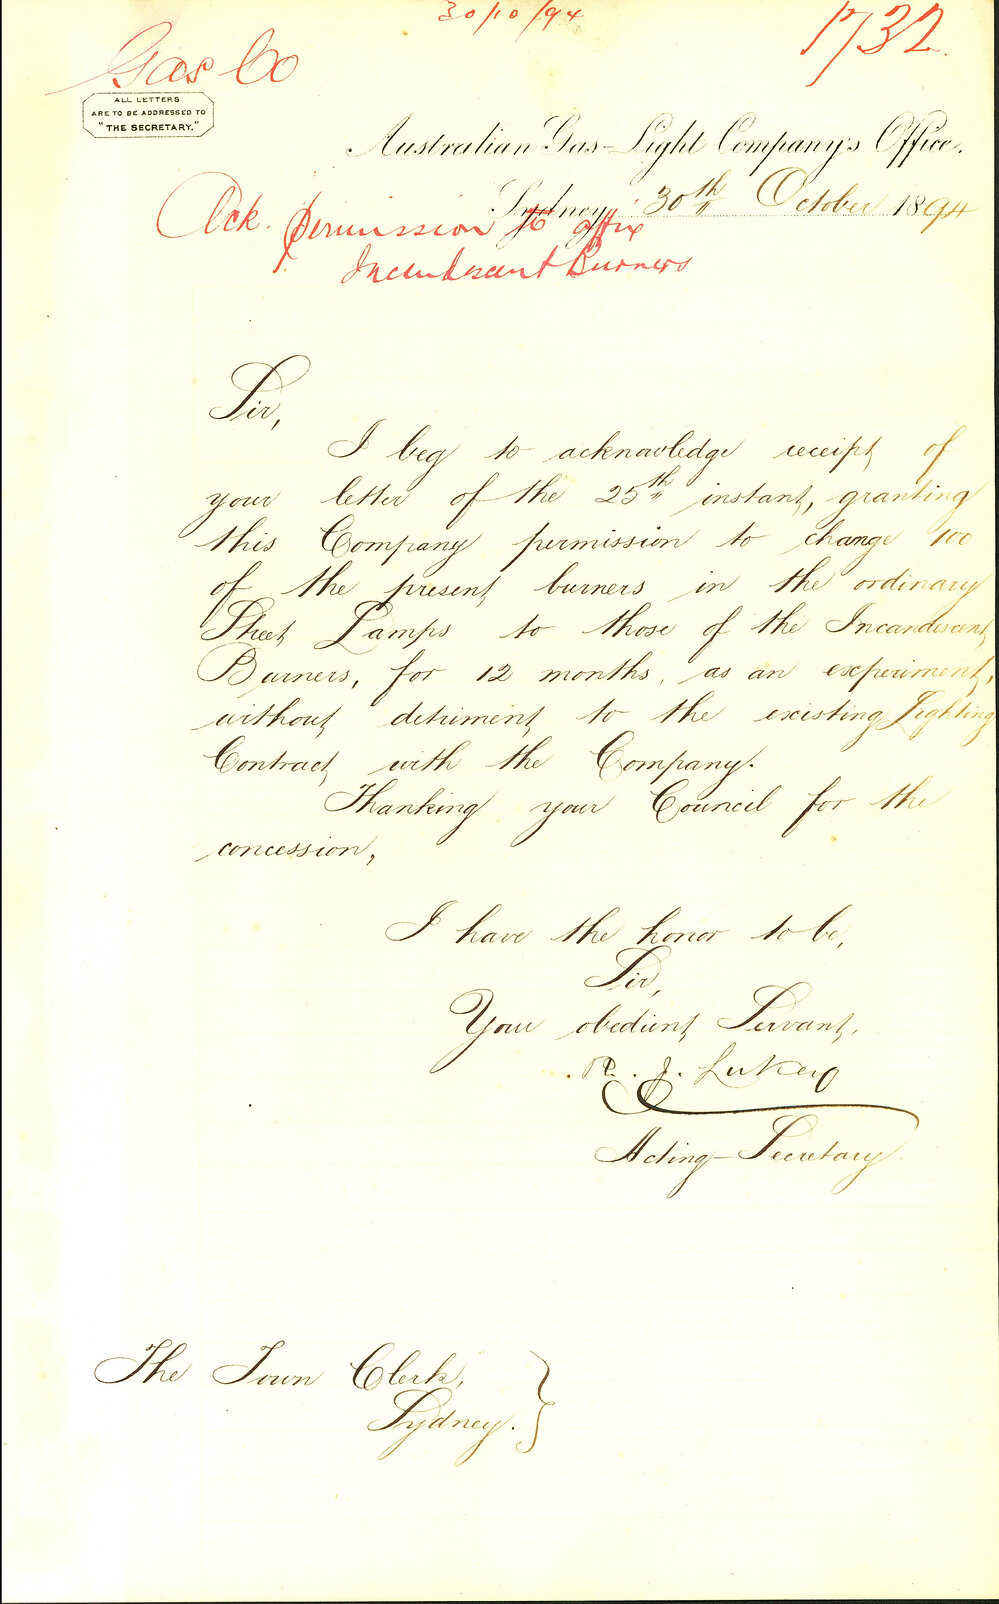 30/10/94
1732
Gas Co
ALL LETTERS
ARE TO BE ADDRESSED TO
"THE SECRETARY."
Australian Gas-Light Company's Office.
Sydney, 30th October 1894
Ack. permission to affix
Incandescent Burners
Sir,
I beg to acknowledge receipt of
your letter of the 25th instant, granting
this Company permission to change 100
of the present burners in the ordinary
Street Lamps to those of the Incandescent
Burners, for 12 months, as an experiment,
without detriment to the existing Lighting
Contract with the Company.
Thanking your Council for the
concession,
I have the honor to be,
Sir,
Your obedient Servant,
R. J. Lukey
Acting-Secretary
The Town Clerk,
Sydney.